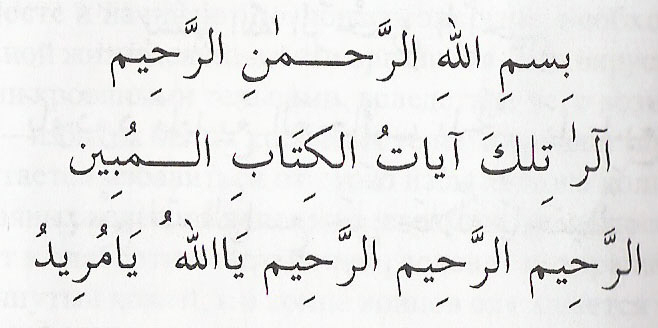 بِسمِ اللهِ الرَّحـــمٰن الرَّحِيم
آلَر تِلكَ آيَاتُ الكِتَابِ الـــمُبِين
الرَّحِيم الرَّحِيم الرَّحِيم يَاالله ُ يَامُرِيدُ